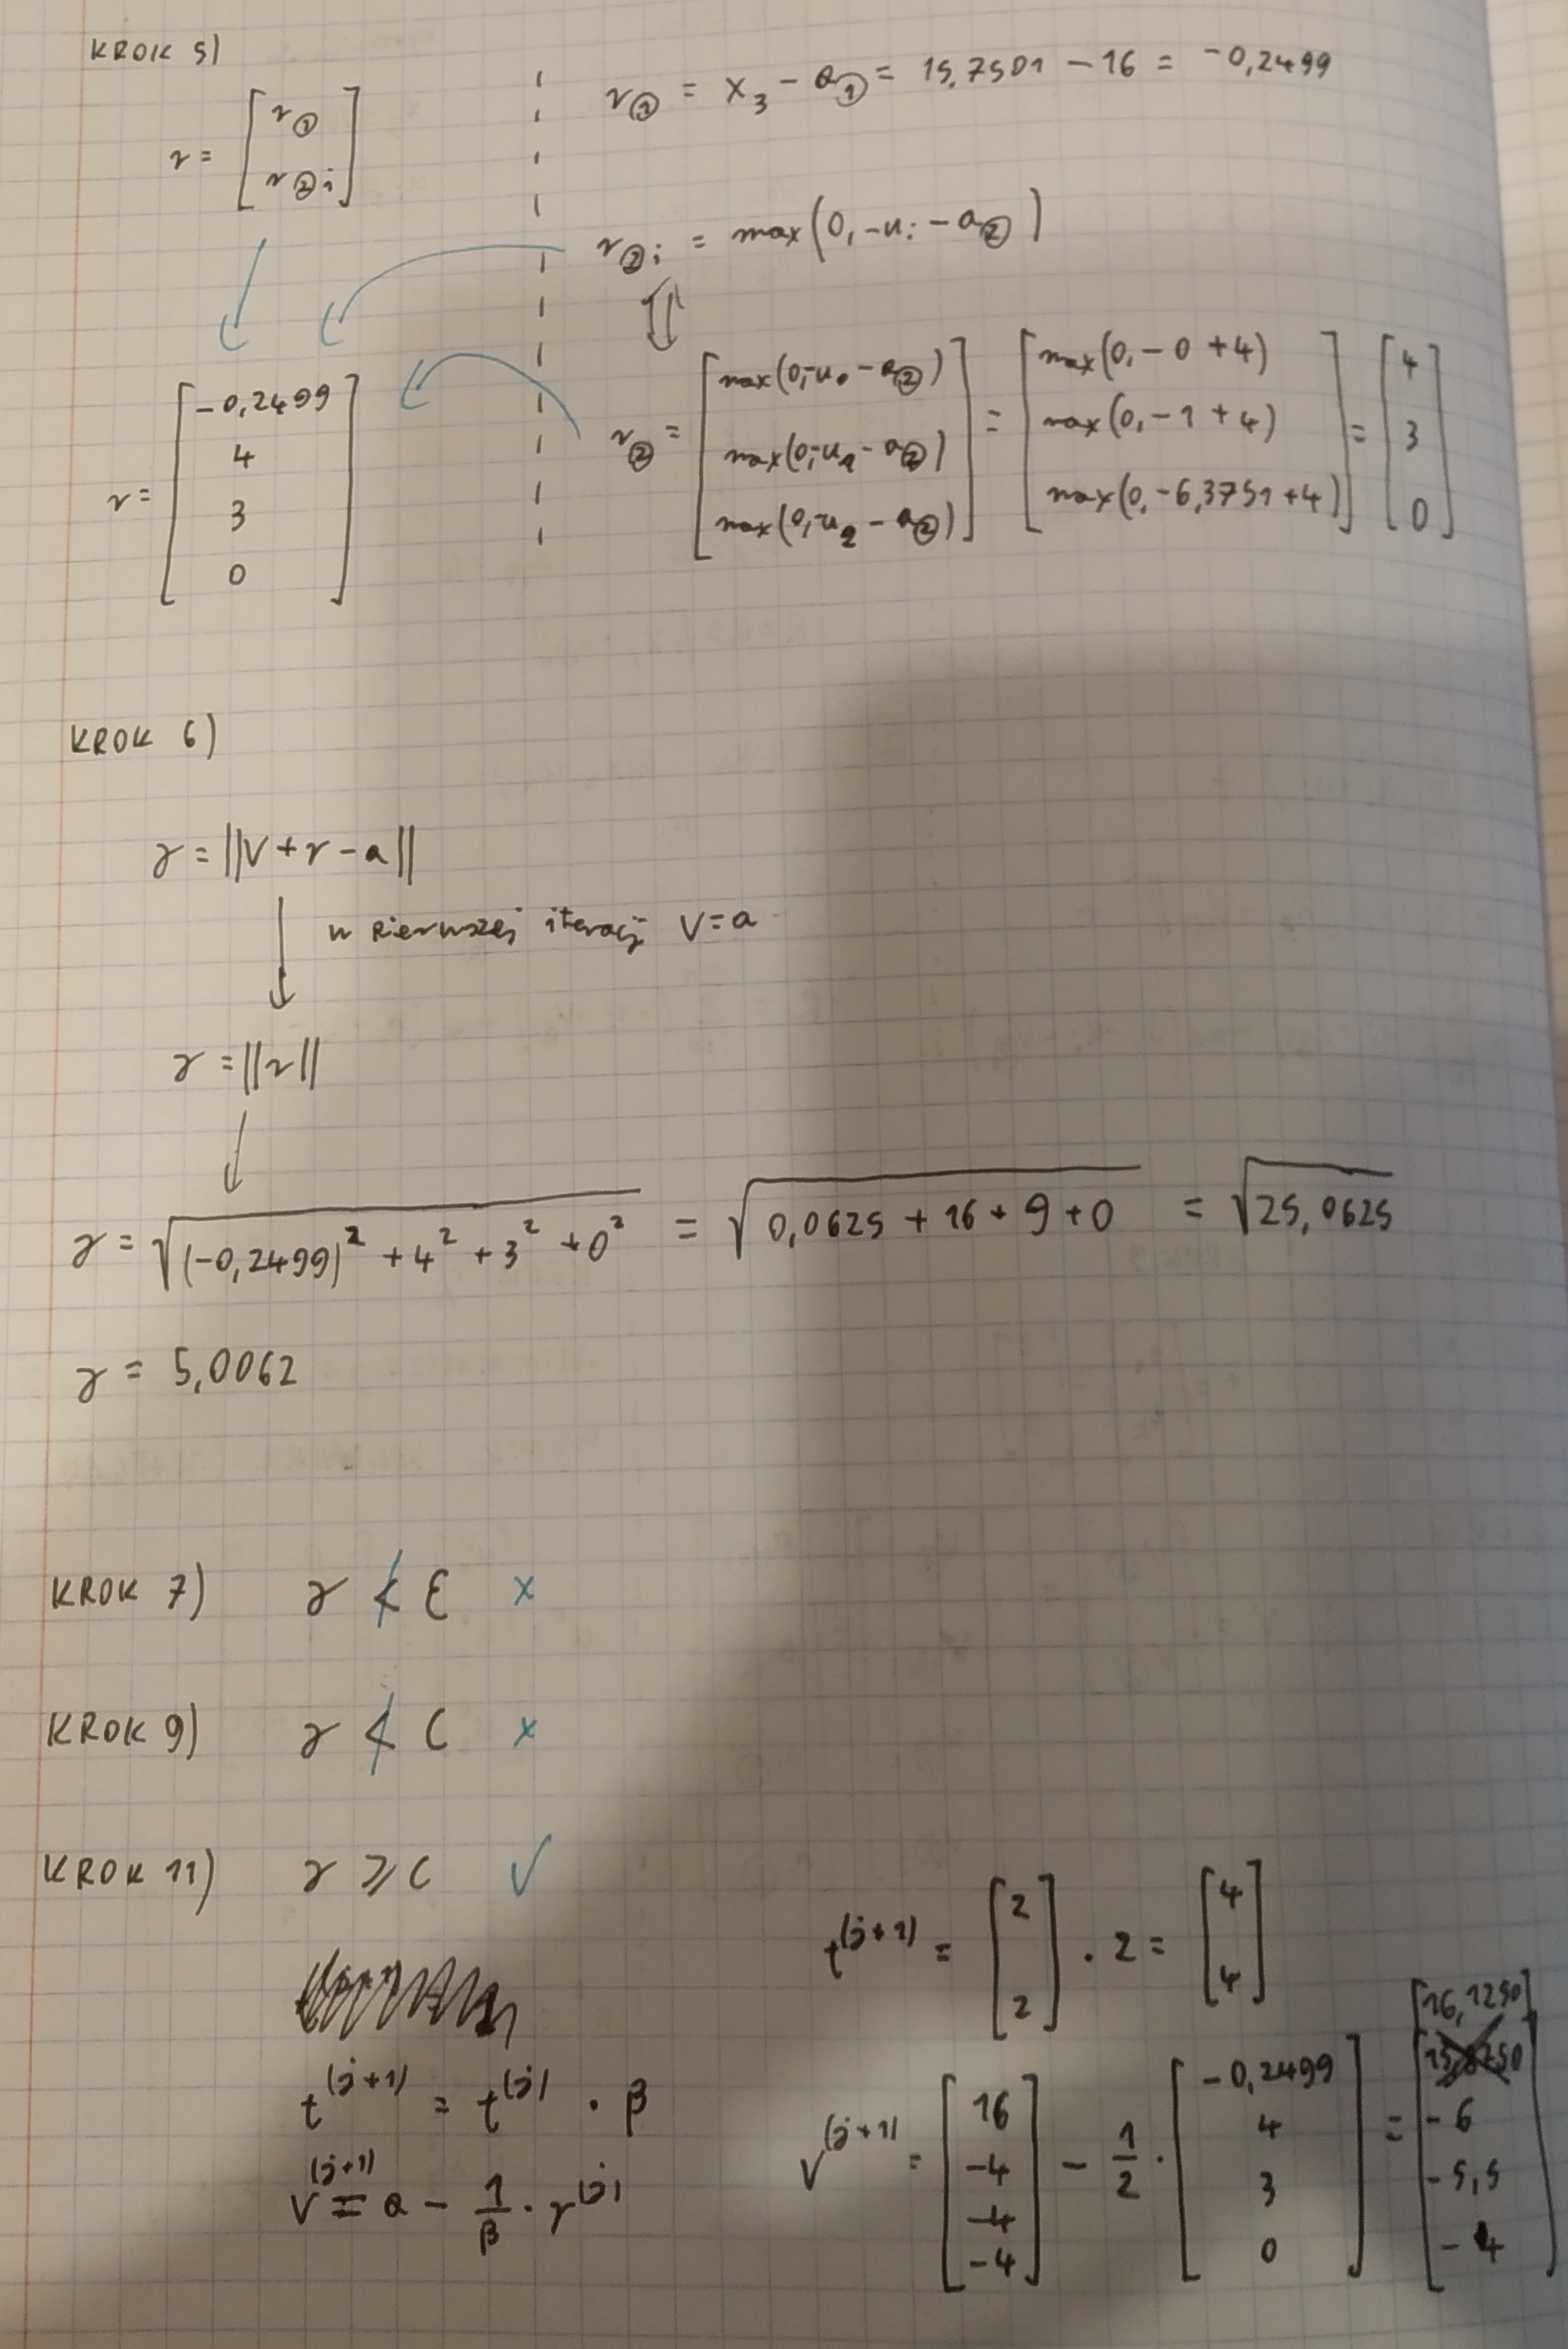 KROK 5)
r = [ r① ; r②i ]
r① = x₃ - a① = 15,7501 - 16 = -0,2499
r②i = max(0, -uᵢ - a②)
r② = [ max(0,-u₀ - a②) ; max(0,-u₁ - a②) ; max(0,-u₂ - a②) ] = [ max(0,-0 +4) ; max(0,-1 +4) ; max(0,-6,3751 +4) ] = [ 4 ; 3 ; 0 ]
r = [ -0,2499 ; 4 ; 3 ; 0 ]
KROK 6)
γ = ||v + r - a||
w pierwszej iteracji v = a
γ = ||r||
γ = √((-0,2499)² + 4² + 3² + 0²) = √(0,0625 + 16 + 9 + 0) = √25,0625
γ = 5,0062
KROK 7) γ ≮ ε x
KROK 9) γ ≮ C x
KROK 11) γ ⩾ C ✓
t^(j+1) = [ 2 ; 2 ] · 2 = [ 4 ; 4 ]
t^(j+1) = t^(j) · β
v^(j+1) = a - 1/β · r^(j)
v^(j+1) = [ 16 ; -4 ; -4 ; -4 ] - 1/2 · [ -0,2499 ; 4 ; 3 ; 0 ] = [ 16,1250 ; -6 ; -5,5 ; -4 ]